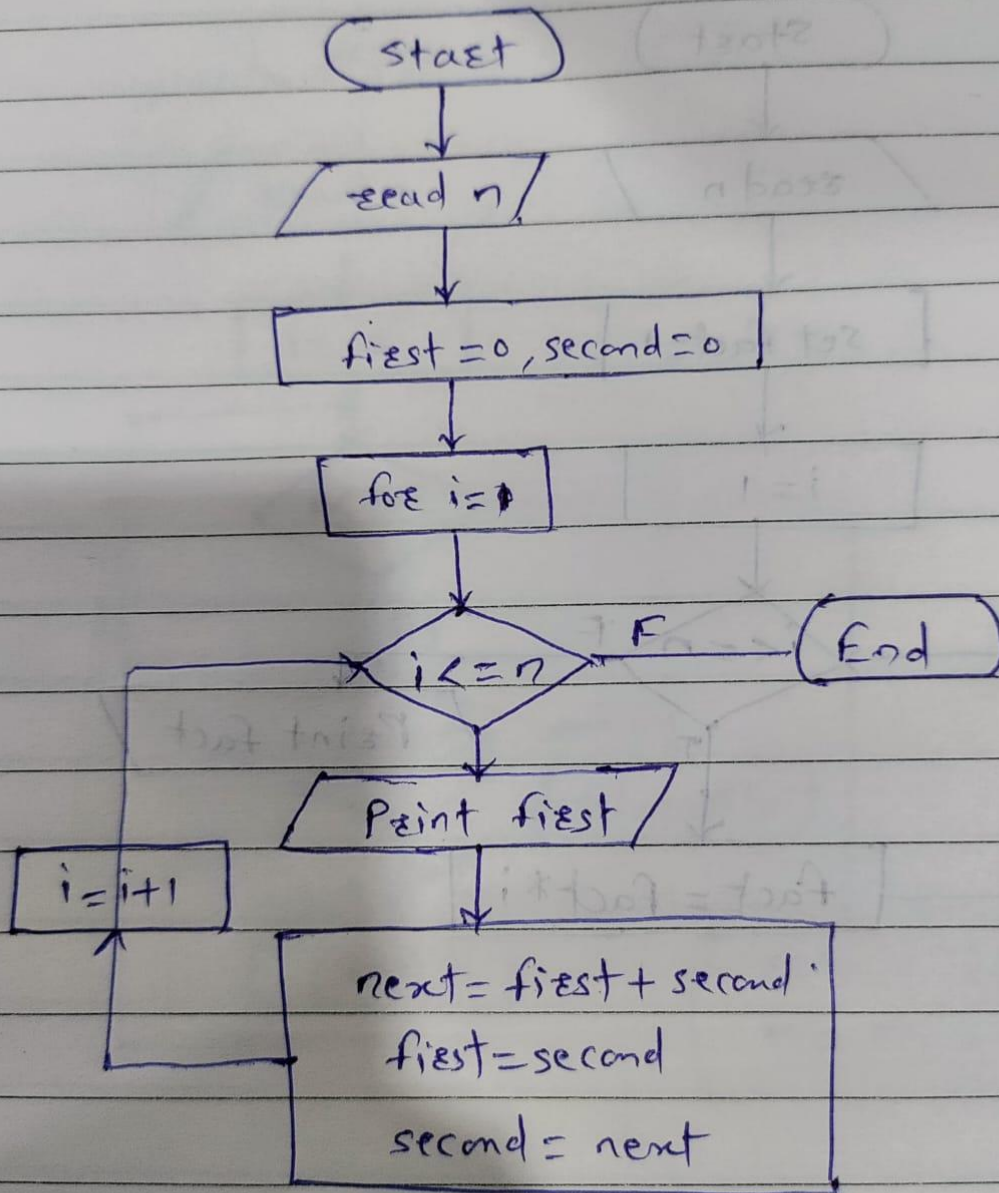 Start
read n
first = 0, second = 0
for i = 1
i <= n
F
End
Print first
i = i+1
next = first + second
first = second
second = next